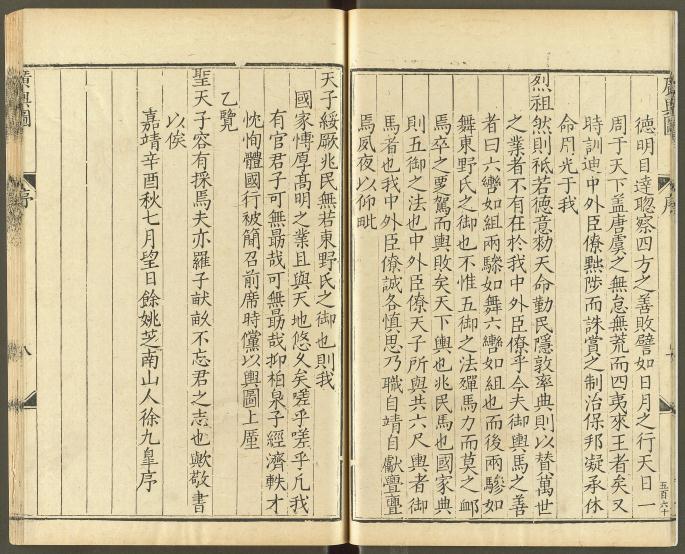 廣輿圖
序
五百六十
德明目達聦察四方之善敗譬如日月之行天日一
周于天下盖唐虞之無怠無荒而四夷來王者矣又
時訓迪中外臣僚黜陟而誅賞之制治保邦凝承休
命用光于我
烈祖然則祗若德意勑天命勤民隱敦率典則以替萬世
之業者不有在於我中外臣僚乎今夫御輿馬之善
者曰六轡如組兩驂如舞六轡如組也而後兩驂如
舞東野氏之御也不惟五御之法殫馬力而莫之卹
焉卒之覂駕而輿敗矣天下輿也兆民馬也國家典
則五御之法也中外臣僚天子所與共六尺輿者御
馬者也我中外臣僚誠各慎思乃職自靖自獻亹亹
焉夙夜以仰毗
天子綏厥兆民無若東野氏之御也則我
國家愽厚髙明之業且與天地悠久矣嗟乎嗟乎凡我
有官君子可無勗哉可無勗哉抑柏泉子經濟軼才
忱恂體國行被簡召前席時儻以輿圖上塵
乙覽
聖天子容有採焉夫亦羅子畎畝不忘君之志也歟敬書
以俟
嘉靖辛酉秋七月望日餘姚芝南山人徐九皐序
廣輿圖
序
八